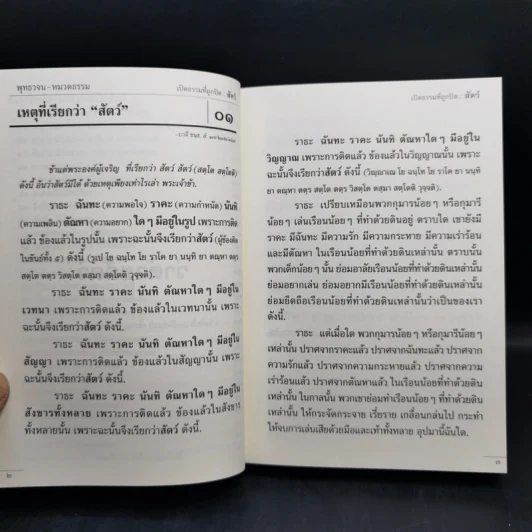 พุทธวจน-หมวดธรรม
เปิดธรรมที่ถูกปิด : สัตว์
เหตุที่เรียกว่า “สัตว์”
๐๑
ข้าแต่พระองค์ผู้เจริญ ที่เรียกว่า สัตว์ สัตว์ (สตฺโต สตฺโตติ)
ดังนี้ อันว่าสัตว์มีได้ ด้วยเหตุเพียงเท่าไรเล่า พระเจ้าข้า.
ราธะ ฉันทะ (ความพอใจ) ราคะ (ความกำหนัด) นันทิ
(ความเพลิน) ตัณหา (ความอยาก) ใด ๆ มีอยู่ในรูป เพราะการติด
แล้ว ข้องแล้วในรูปนั้น เพราะฉะนั้นจึงเรียกว่าสัตว์ (ผู้ข้องติด
ในขันธ์ทั้ง ๕) ดังนี้ (รูเป โข ราธ โย ฉนฺโท โย ราโค ยา นนฺทิ ยา ตณฺหา ตตฺร
สตฺโต ตตฺร วิสตฺโต ตสฺมา สตฺโตติ วุจฺจติ).
ราธะ ฉันทะ ราคะ นันทิ ตัณหาใด ๆ มีอยู่ใน
เวทนา เพราะการติดแล้ว ข้องแล้วในเวทนานั้น เพราะ
ฉะนั้นจึงเรียกว่าสัตว์ ดังนี้.
ราธะ ฉันทะ ราคะ นันทิ ตัณหาใด ๆ มีอยู่ใน
สัญญา เพราะการติดแล้ว ข้องแล้วในสัญญานั้น เพราะ
ฉะนั้นจึงเรียกว่าสัตว์ ดังนี้.
ราธะ ฉันทะ ราคะ นันทิ ตัณหาใด ๆ มีอยู่ใน
สังขารทั้งหลาย เพราะการติดแล้ว ข้องแล้วในสังขาร
ทั้งหลายนั้น เพราะฉะนั้นจึงเรียกว่าสัตว์ ดังนี้.
๒
เปิดธรรมที่ถูกปิด : สัตว์
ราธะ ฉันทะ ราคะ นันทิ ตัณหาใด ๆ มีอยู่ใน
วิญญาณ เพราะการติดแล้ว ข้องแล้วในวิญญาณนั้น เพราะ
ฉะนั้นจึงเรียกว่าสัตว์ ดังนี้ (วิญฺญาเณ โย ฉนฺโท โย ราโค ยา นนฺทิ
ยา ตณฺหา ตตฺร สตฺโต ตตฺร วิสตฺโต ตสฺมา สตฺโตติ วุจฺจติ).
ราธะ เปรียบเหมือนพวกกุมารน้อย ๆ หรือกุมารี
น้อย ๆ เล่นเรือนน้อย ๆ ที่ทำด้วยดินอยู่ ตราบใด เขายังมี
ราคะ มีฉันทะ มีความรัก มีความกระหาย มีความเร่าร้อน
และมีตัณหา ในเรือนน้อยที่ทำด้วยดินเหล่านั้น ตราบนั้น
พวกเด็กน้อย ๆ นั้น ย่อมอาลัยเรือนน้อยที่ทำด้วยดินเหล่านั้น
ย่อมอยากเล่น ย่อมอยากมีเรือนน้อยที่ทำด้วยดินเหล่านั้น
ย่อมยึดถือเรือนน้อยที่ทำด้วยดินเหล่านั้นว่าเป็นของเรา
ดังนี้.
ราธะ แต่เมื่อใด พวกกุมารน้อย ๆ หรือกุมารีน้อย ๆ
เหล่านั้น ปราศจากราคะแล้ว ปราศจากฉันทะแล้ว ปราศจาก
ความรักแล้ว ปราศจากความกระหายแล้ว ปราศจากความ
เร่าร้อนแล้ว ปราศจากตัณหาแล้ว ในเรือนน้อยที่ทำด้วยดิน
เหล่านั้น ในกาลนั้น พวกเขาย่อมทำเรือนน้อย ๆ ที่ทำด้วยดิน
เหล่านั้น ให้กระจัดกระจาย เรี่ยราย เกลื่อนกล่นไป กระทำ
ให้จบการเล่นเสียด้วยมือและเท้าทั้งหลาย อุปมานี้ฉันใด.
๓